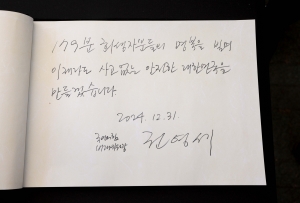 179분 희생자분들의 명복을 빌며
이래라도 사고없는 안전한 대한민국을
만들겠습니다
2024 12. 31
국민의힘
권영세